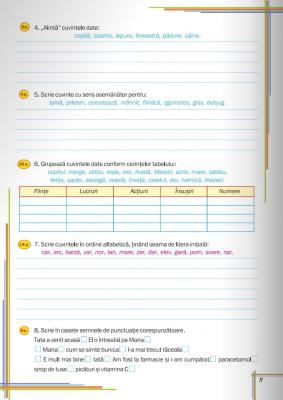 3 p.
4. „Alintă” cuvintele date:
copilă, coame, iepure, fereastră, pădure, câine.
4 p.
5. Scrie cuvinte cu sens asemănător pentru:
taină, prieten, cercetează, mâhnit, fiindcă, zgomotos, glas, belșug.
6. Grupează cuvintele date conform cerințelor tabelului:
copilul, merge, stilou, roșie, trei, livadă, Marcel, scrie, mare, tablou,
fetița, șapte, aleargă, veselă, învață, caietul, doi, harnică, treizeci.
Ființe Lucruri Acțiuni Însușiri Numere
14 p.
7. Scrie cuvintele în ordine alfabetică, ținând seama de litera inițială:
car, arc, barză, var, nor, lan, mare, zar, dar, elev, gară, pom, soare, rac.
8. Scrie în casete semnele de punctuație corespunzătoare.
Tata a venit acasă El o întreabă pe Maria
Maria cum se simte bunica I-a mai trecut răceala
E mult mai bine tată Am fost la farmacie și i-am cumpărat paracetamol
sirop de tuse picături și vitamina C